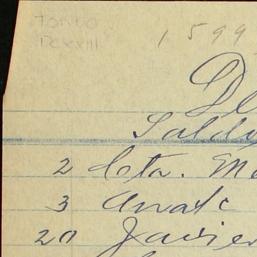 TONDO
DCXXIII
1599
D
Saldo
2 Cta. M
3 Anat
20 Javier